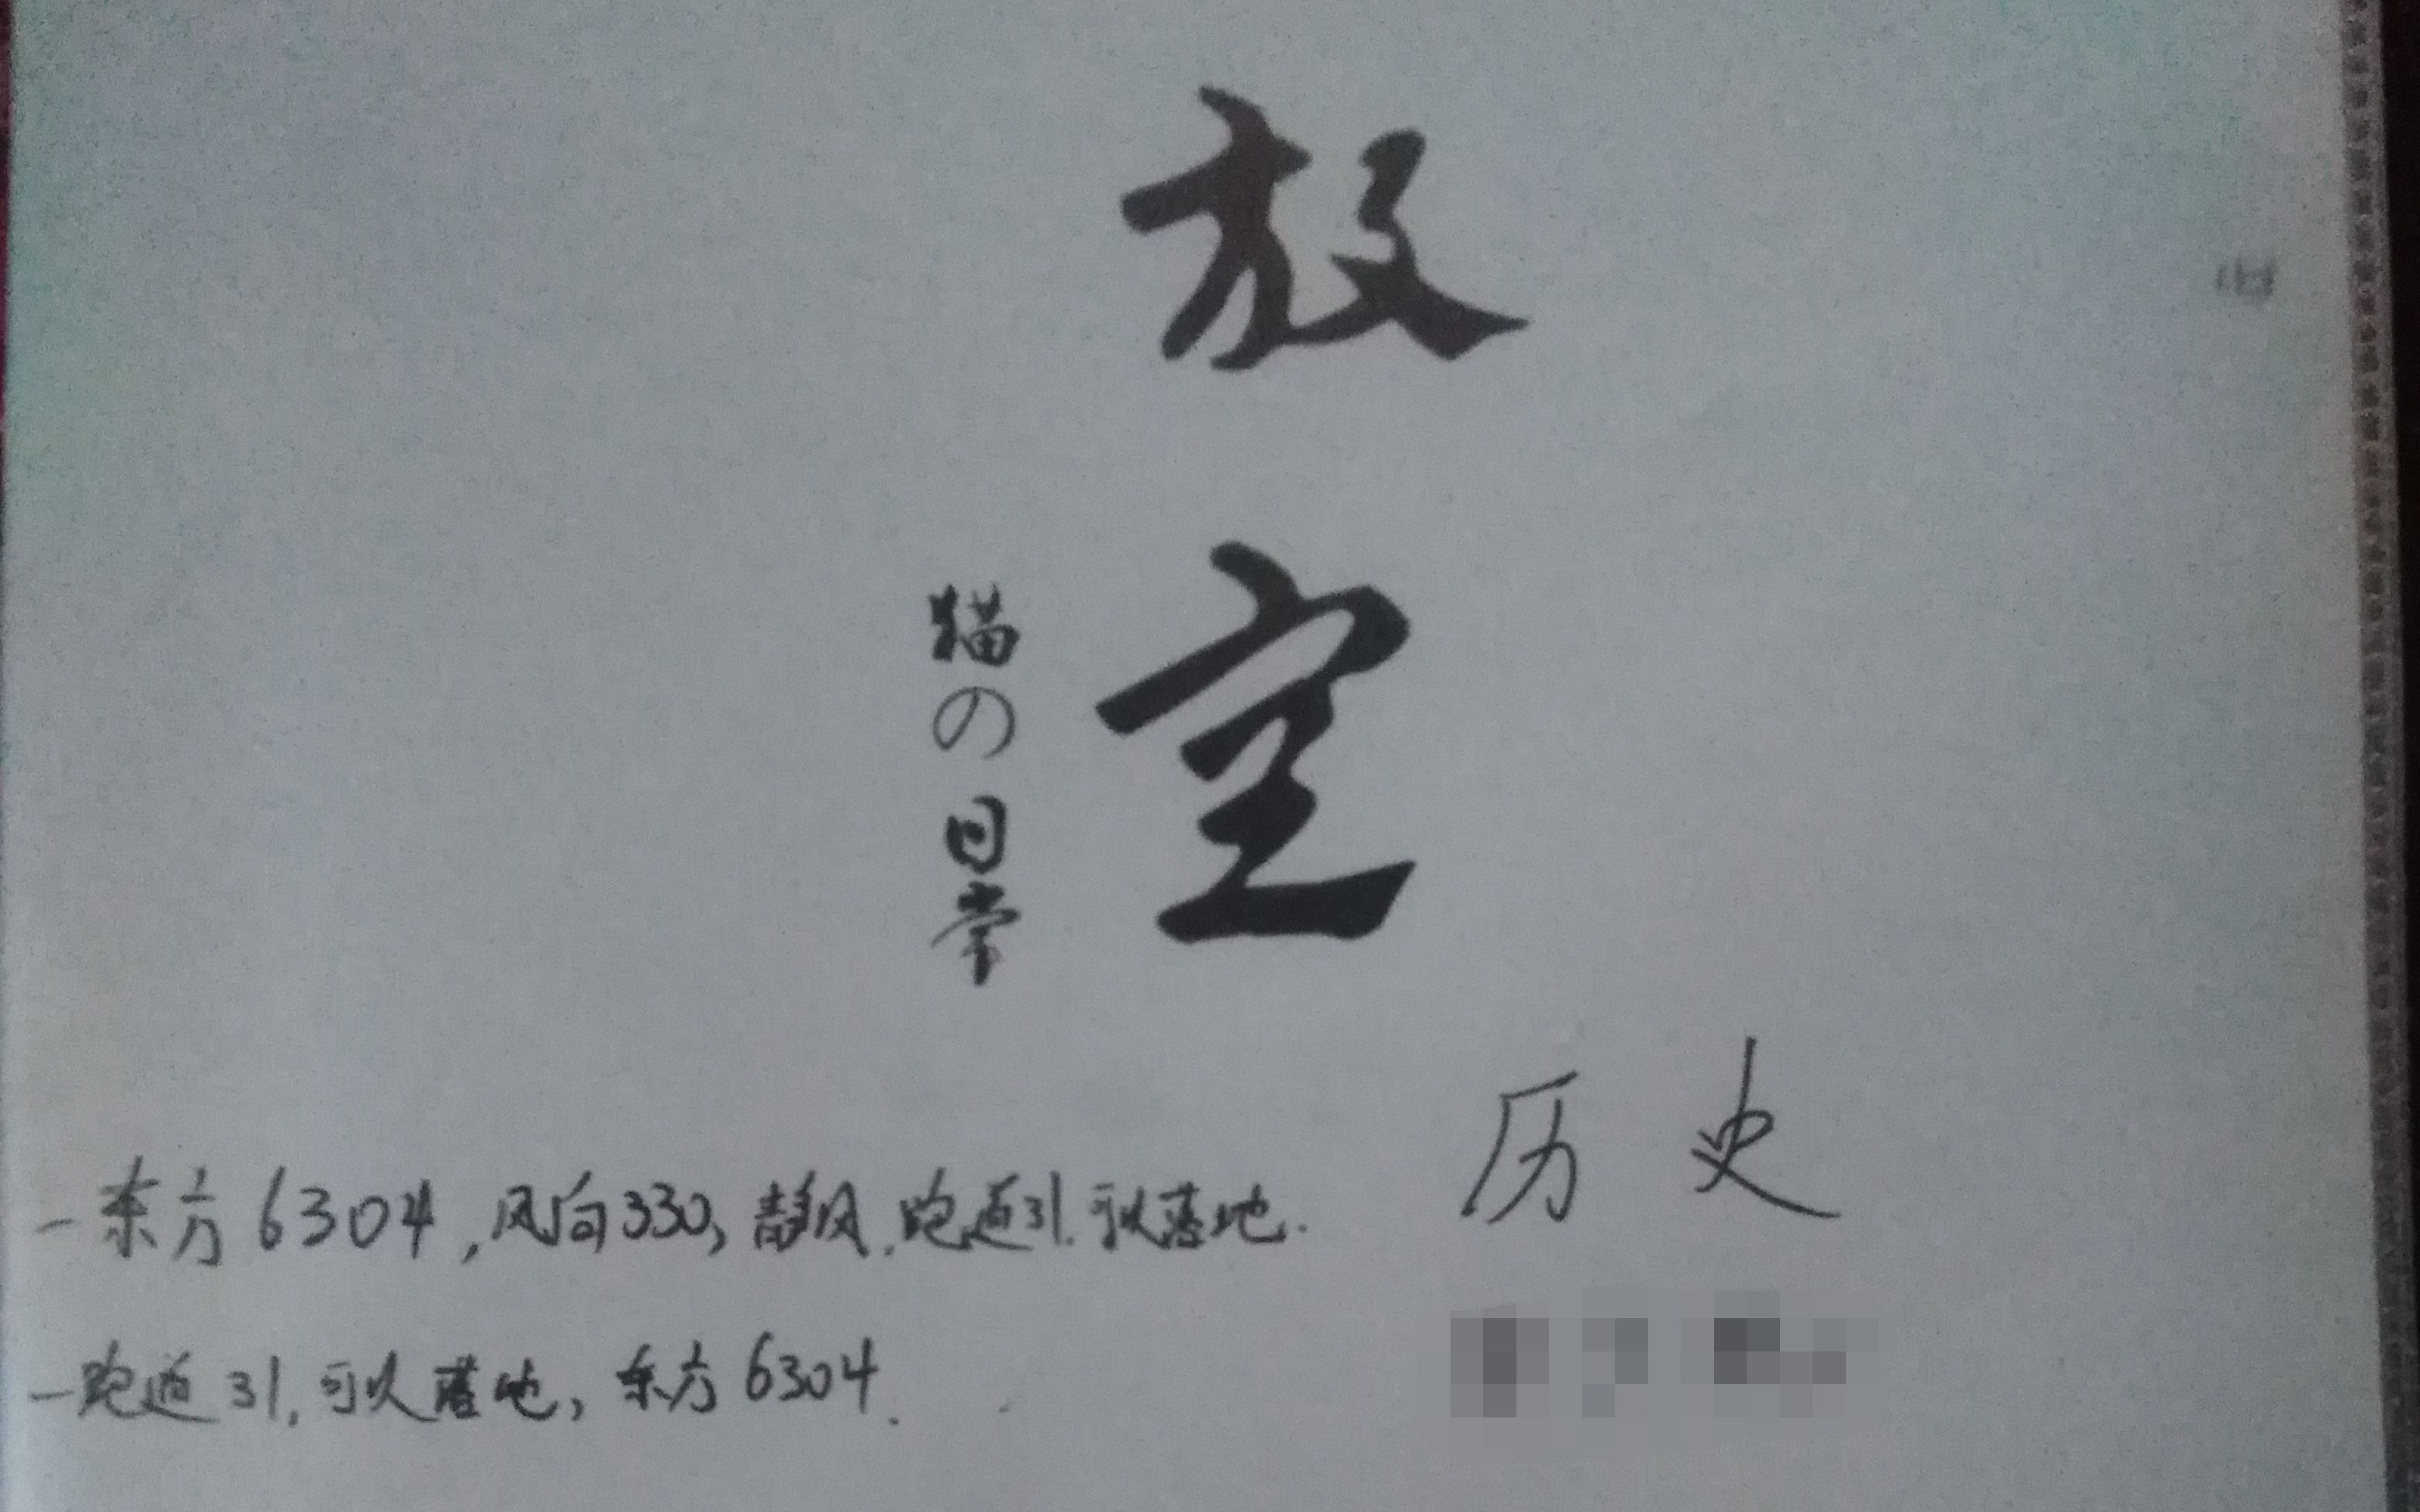 放空
猫の日常
历史
-东方6304,风向330,静风,跑道31.可以落地.
-跑道31.可以落地,东方6304.